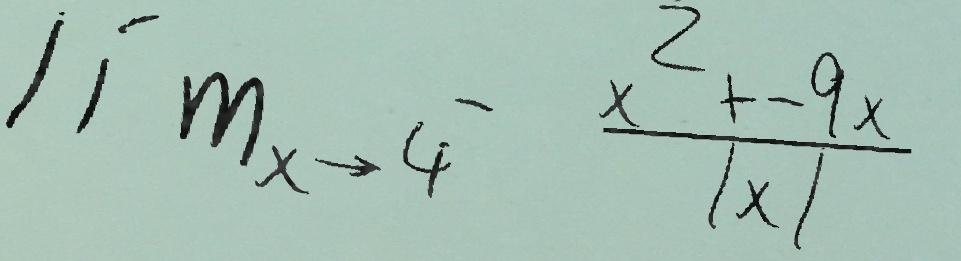 \lim_{x \to 4^-} \frac{x^2 + -9x}{|x|}